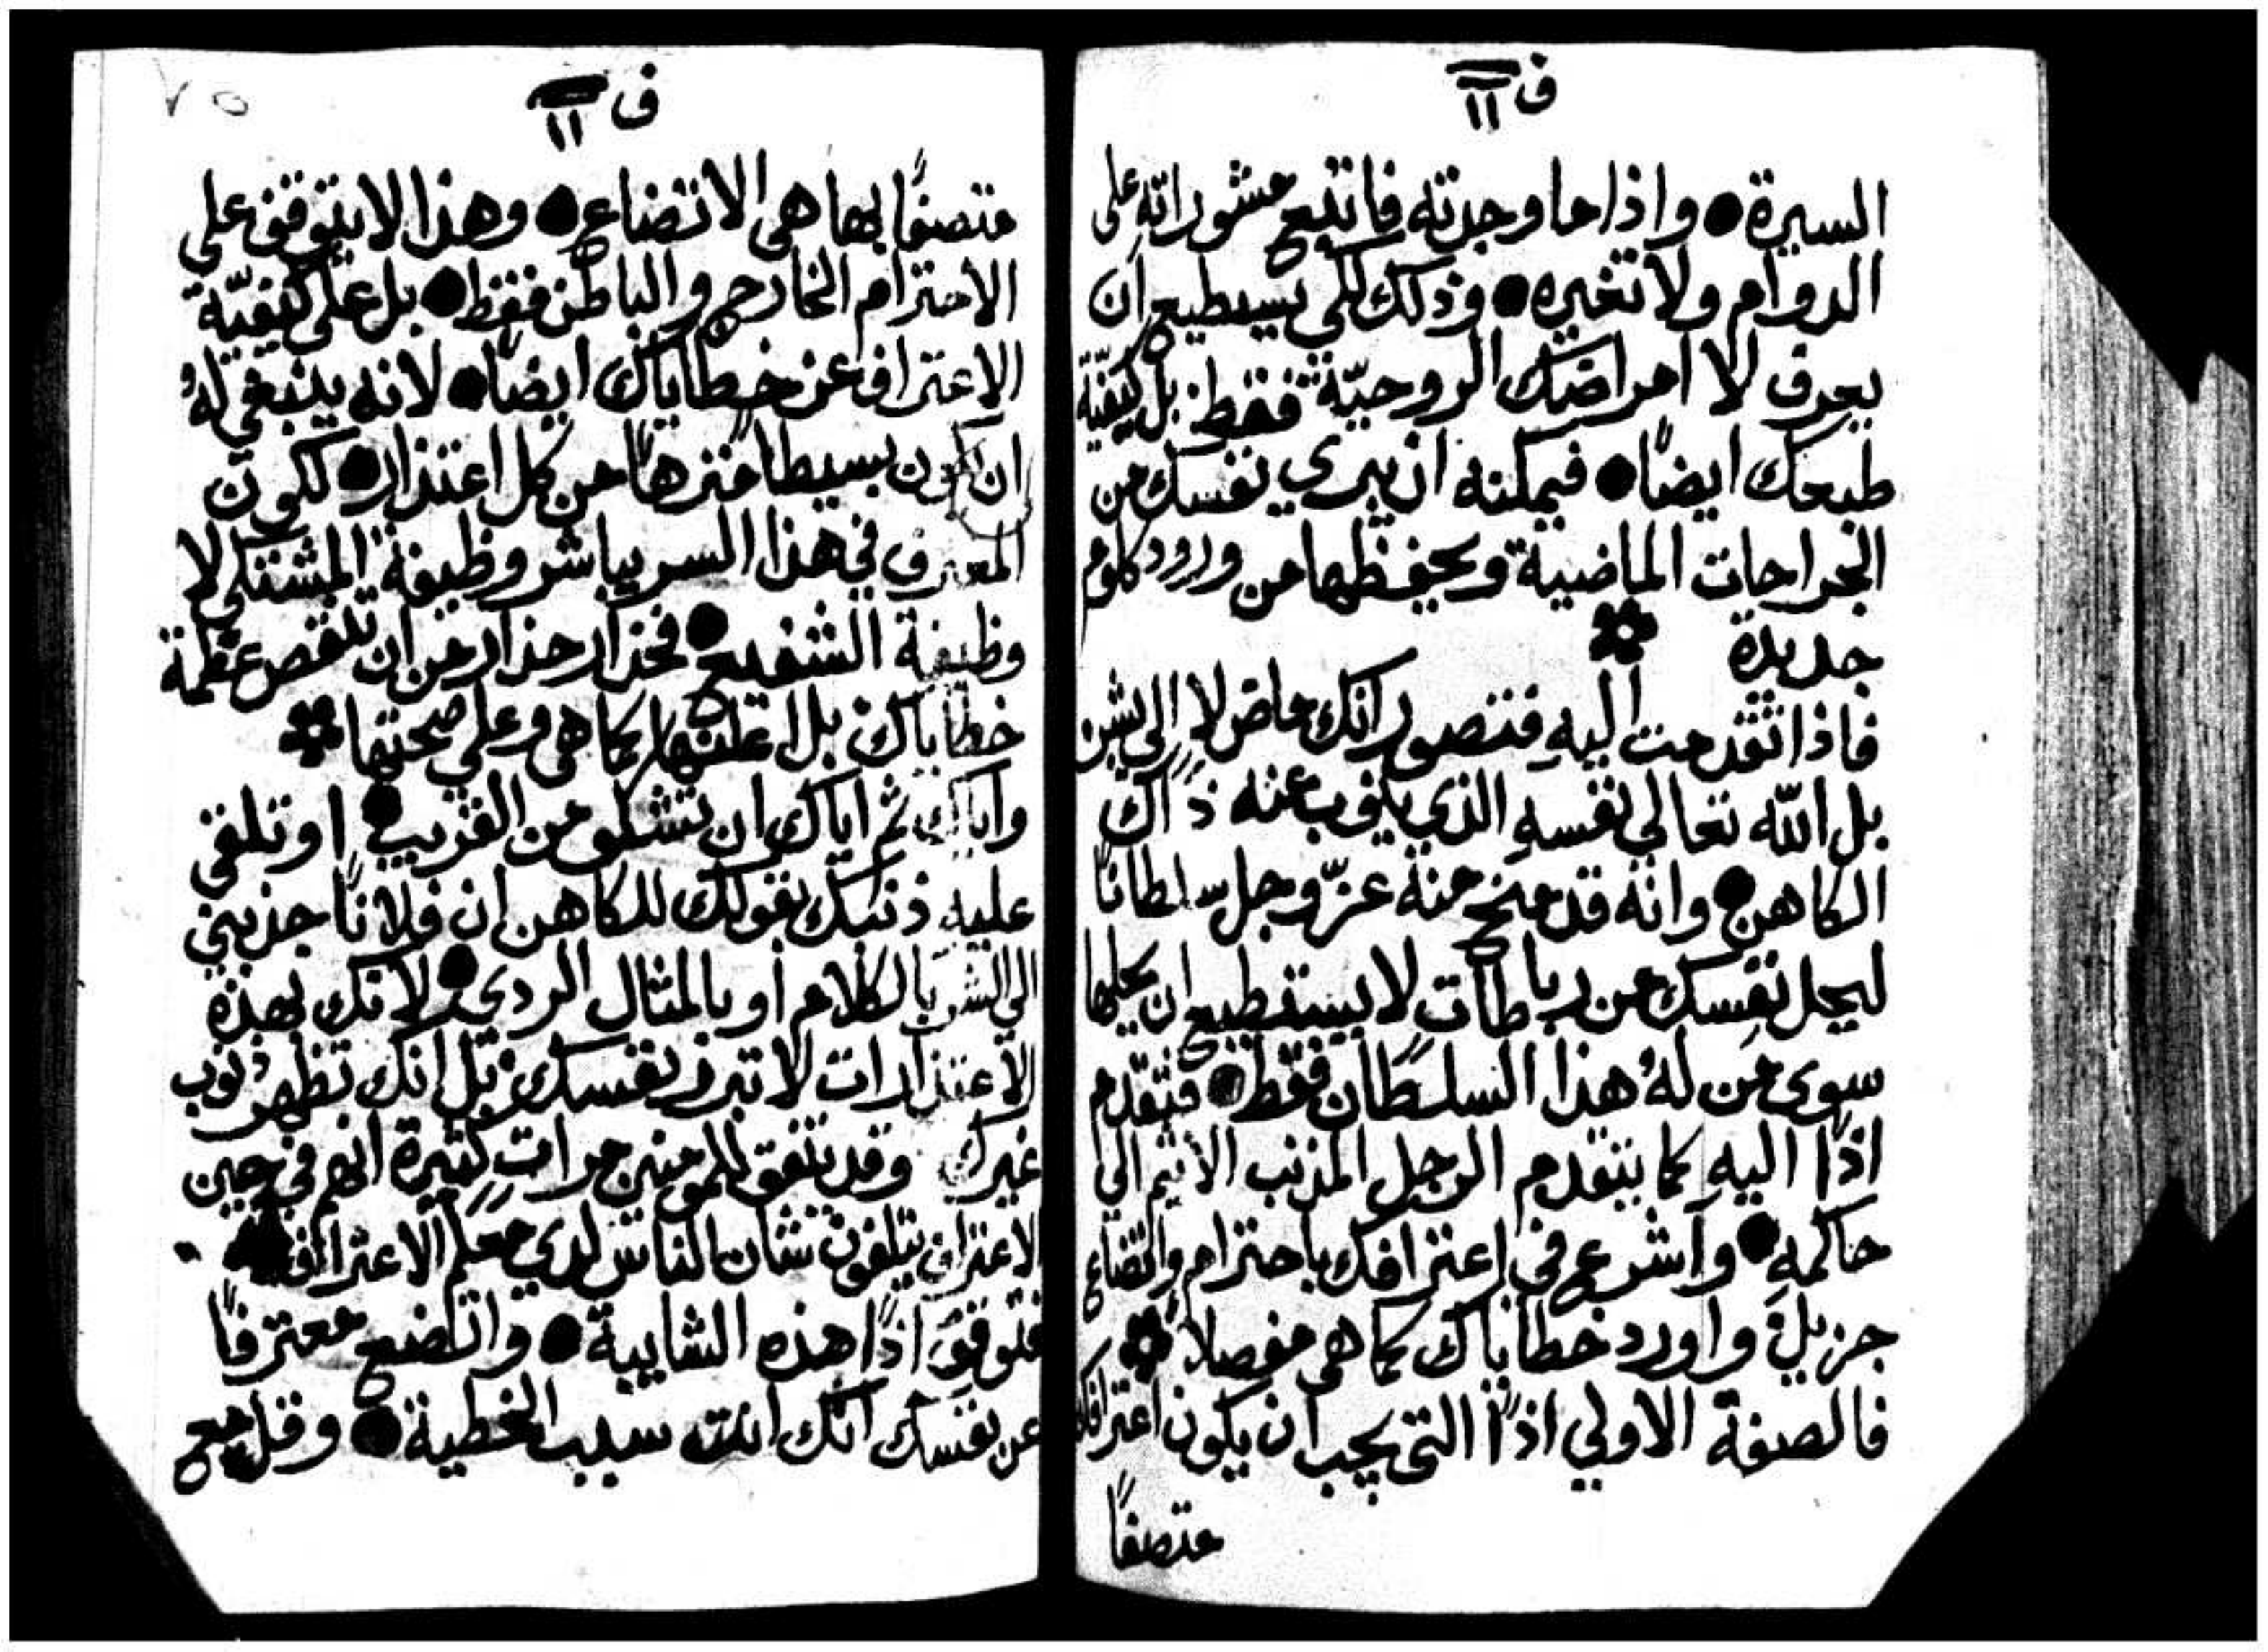 ف ١١
السيرة ● واذا ما وجدته فاتبع مشوراته على
الدوام ولا تغيره ● وذلك لكي يستطيع ان
يعرف لا امراضك الروحيّة فقط بل كيفيّة
طبعك ايضًا ● فيمكنه ان يبري نفسك من
الجراحات الماضية ويحفظها من ورود كلوم
جديدة
فاذا تقدمت اليهِ فتصور انك ماضٍ لا الى بشرٍ
بل الله تعالي نفسهِ الذي ينوب عنه ذاك
الكاهن ● وانه قد منح منه عزّ وجل سلطانًا
ليحل نفسك من رباطاتٍ لا يستطيع ان يحلها
سوى من لهُ هذا السلطان فقط ● فتقدّم
اذًا اليهِ كما يتقدم الرجل المذنب الاثيم الي
حاكمهِ ● واشرع في اعترافك باحترام واتضاع
جزيلٍ واورد خطاياك كما هي مفصلاً
فالصفة الاولي اذًا التي يجب ان يكون اعترافك
متصفًا
ف ١١
٧٥
متصفًا بها هي الاتضاع ● وهذا لا يتوقف علي
الاحترام الخارج والباطن فقط ● بل علي كيفيّة
الاعتراف عن خطاياك ايضًا ● لانه ينبغي لهُ
ان يكون بسيطًا منزهًا من كل اعتذار ● لكون
المعترف في هذا السر يباشر وظيفة المشتكي لا
وظيفة الشفيع ● فحذار حذار من ان تنقص عظمة
خطاياك بل اعلنها كما هي وعلي صحتها
واياك ثم اياك ان تشكو من القريب ● او تلقي
عليهِ ذنبك بقولك للكاهن ان فلانًا جذبني
الي الشر بالكلام او بالمثال الردي ● لانك بهذه
الاعتذارات لا تبرر نفسك بل انك تظهر ذنوب
غيرك وقد يتفق للمومنين مراتٍ كثيرة انهم في حين
الاعتراف يتلفون شان الناس لدي معلم الاعتراف ●
فتوقَّ اذًا هذه الشايبة ● واتضع معترفًا
عن نفسك انك انت سبب الخطية ● وقل مع